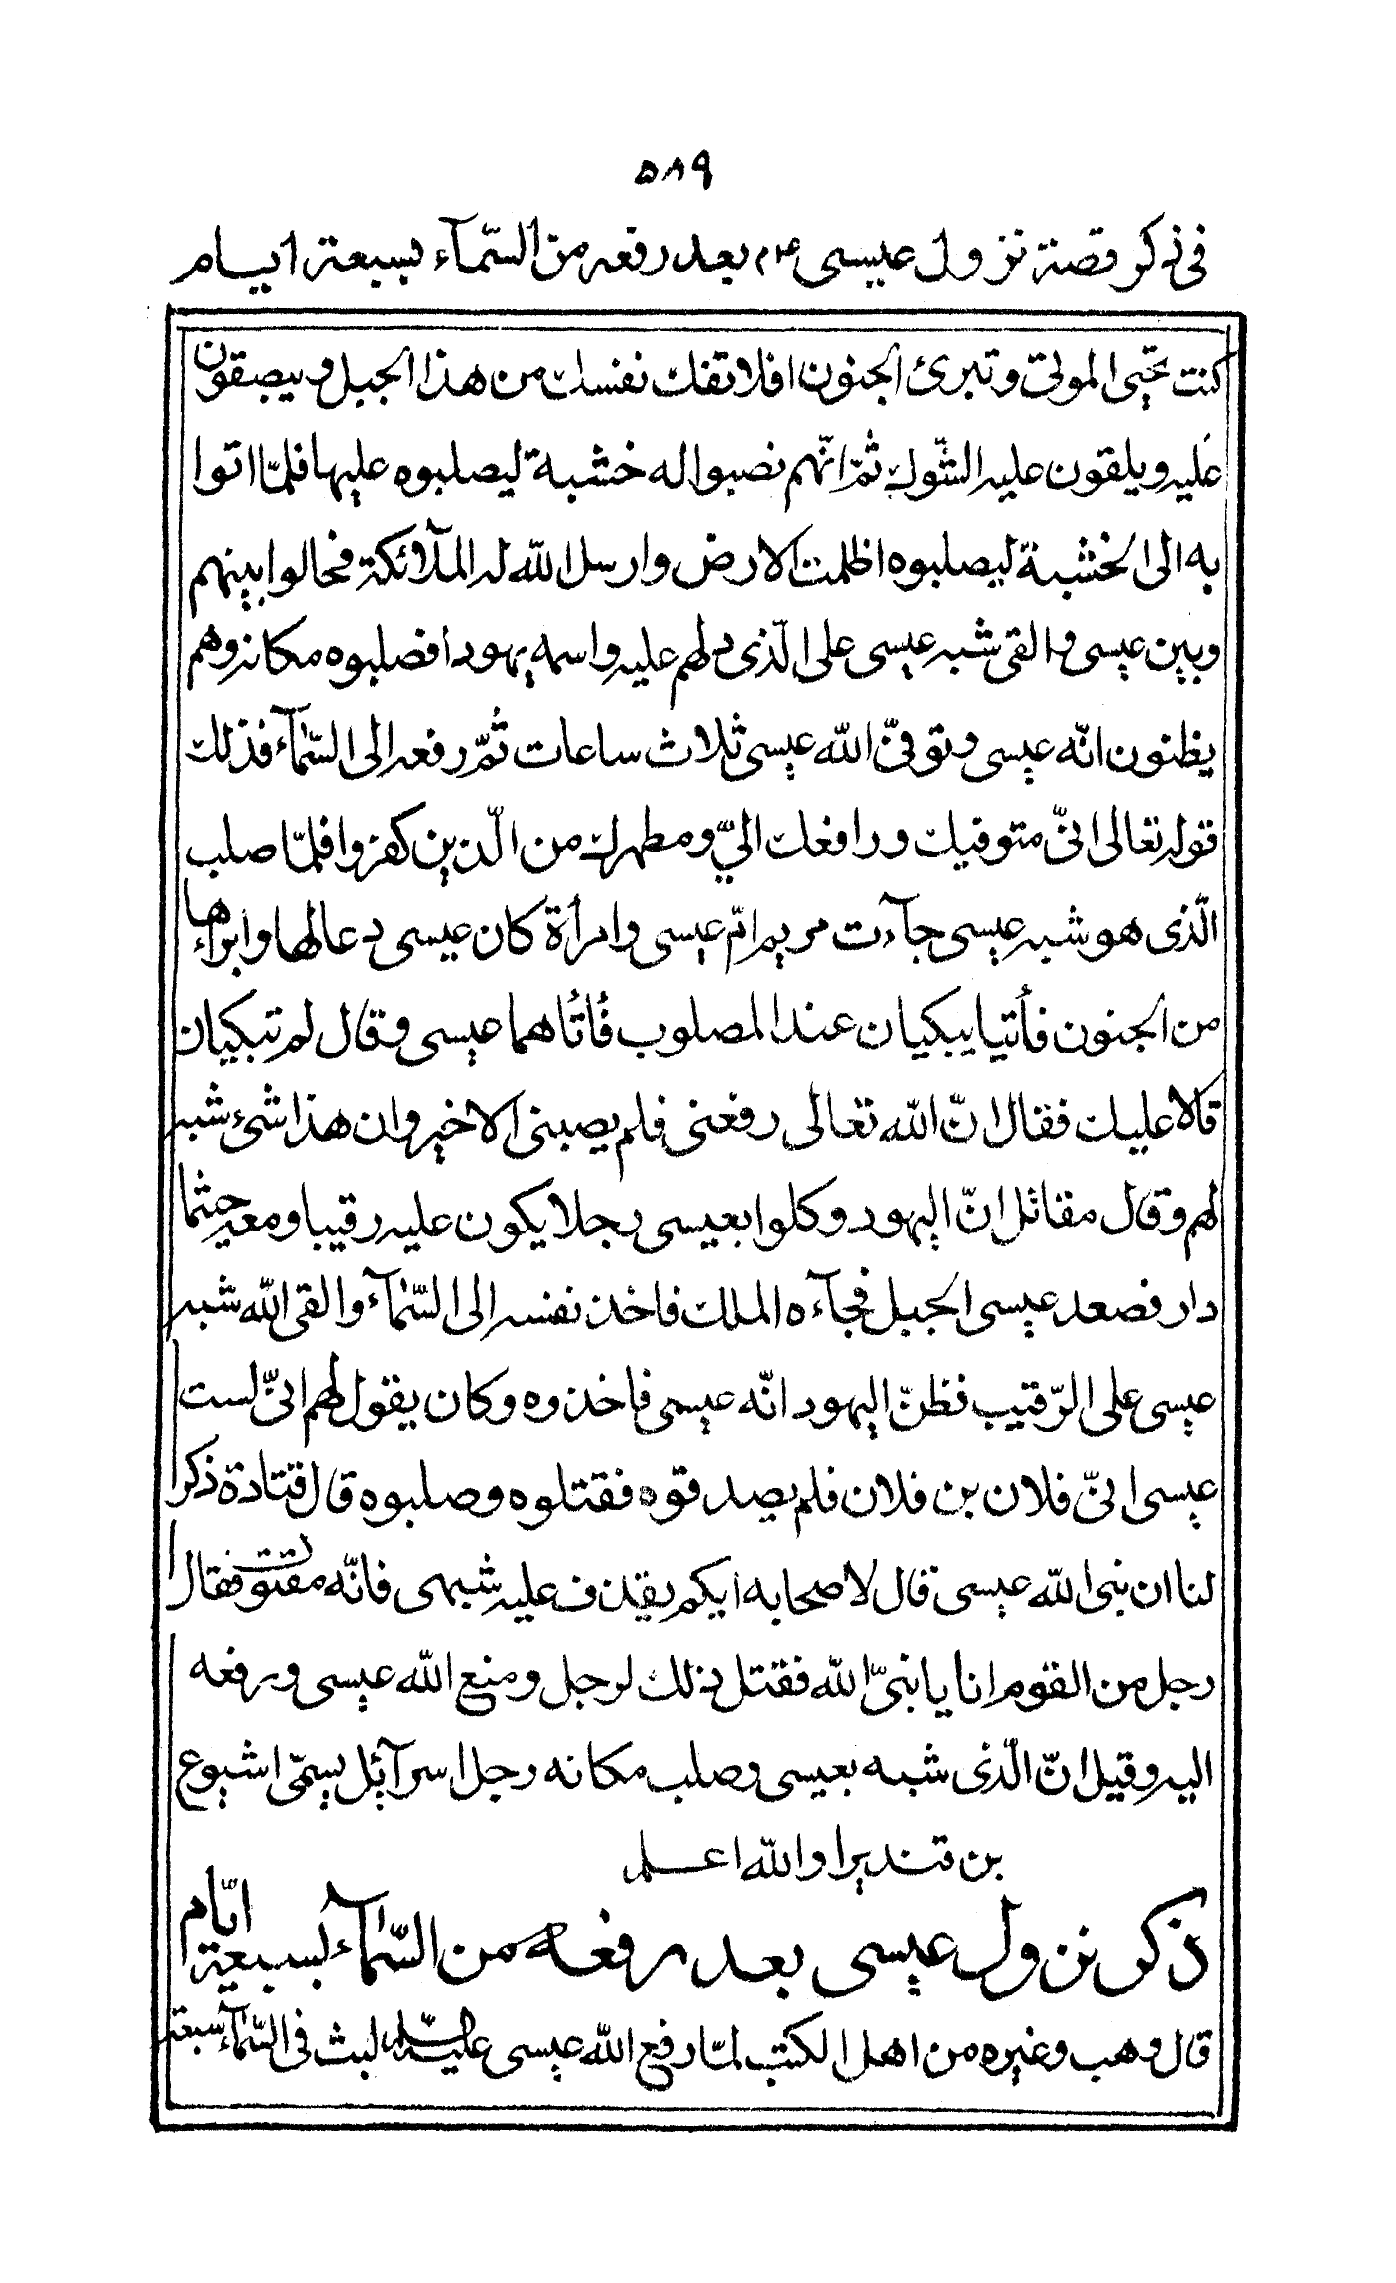 ٥٨٩
في ذكر قصة نزول عيسى ع م بعد رفعه من السّمآء بسبعة ايام
كنت تحيى الموتى وتبرئ الجنون افلا تفك نفسك من هذا الجبل ويبصقون
عليه ويلقون عليه الشّوك ثمّ انّهم نصبوا له خشبة ليصلبوه عليها فلمّا اتوا
به الى الخشبة ليصلبوه اظلمت الارض وارسل الله له الملآئكة فحالوا بينهم
وبين عيسى والقى شبه عيسى على الّذى دلهم عليه واسمه يهودا فصلبوه مكانه وهم
يظنون انّه عيسى وتوفىّ الله عيسى ثلاث ساعات ثُمّ رفعه الى السّمآء فذلك
قوله تعالى انىّ متوفيك ورافعك الىّ ومطهرك من الّذين كفروا فلمّا صلب
الّذى هو شبه عيسى جآءت مريم امّ عيسى وامرأة كان عيسى دعا لها وابراءها
من الجنون فأتيا يبكيان عند المصلوب فأتاهما عيسى وقال لم تبكيان
قالا عليك فقال انّ الله تعالى رفعنى فلم يصبنى الا خير وان هذا شئ شبه
لهم وقال مقاتل انّ اليهود وكلوا بعيسى رجلا يكون عليه رقيبا ومعه حيثما
دار فصعد عيسى الجبل فجآءه الملك فاخذ نفسه الى السّمآء والقى الله شبه
عيسى على الرّقيب فظنّ اليهود انّه عيسى فاخذوه وكان يقول لهم انىّ لست
عيسى انىّ فلان بن فلان فلم يصدقوه فقتلوه وصلبوه قال قتادة ذكرا
لنا ان نبى الله عيسى قال لاصحابه ايكم يقذف عليه شبهى فانّه مقتول فقال
رجل من القوم انا يا نبىّ الله فقتل ذلك لرجل ومنع الله عيسى ورفعه
اليه وقيل انّ الّذى شبه بعيسى وصلب مكانه رجل اسرآئل يسمّى اشيوع
بن قنديرا والله اعلم
ذكر نزول عيسى بعد رفعه من السّمآء لسبعة ايّام
قال وهب وغيره من اهل الكتب لمّا رفع الله عيسى عليه السّلم لبث فى السّمآء سبعة